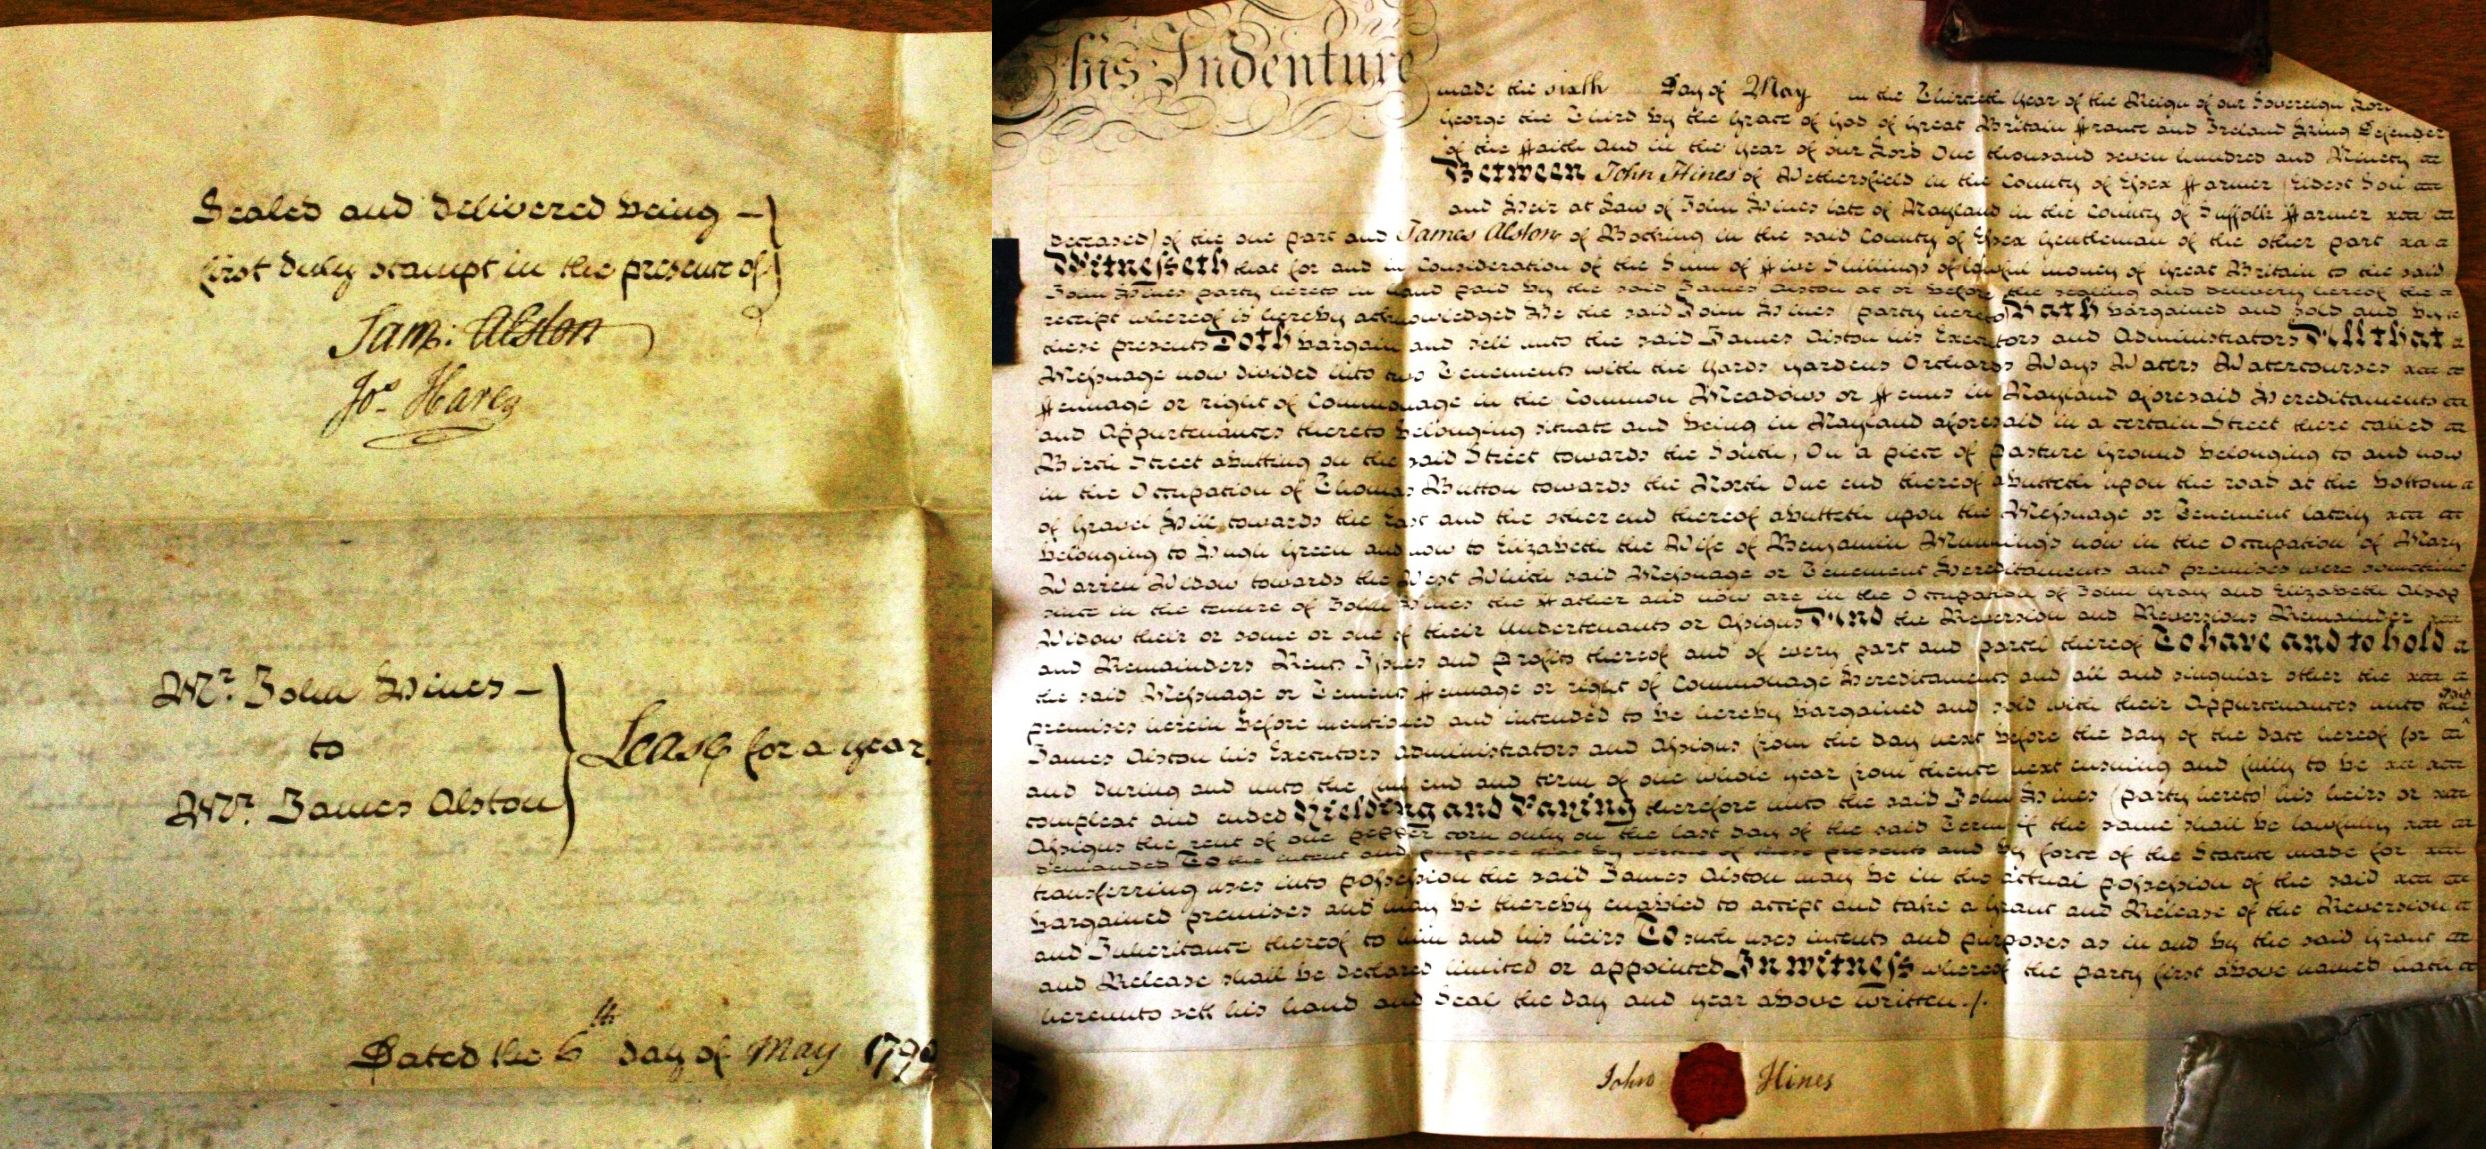 Sealed and delivered being —
first duly stampt in the presence of
Sam: Alston
Jos. Harey
Mr. John Hines —
to
Mr. James Alston
Lease for a year.
Dated the 6th day of May 1790
This Indenture made the sixth Day of May in the Thirtieth Year of the Reign of our Sovereign Lord
George the Third by the Grace of God of Great Britain France and Ireland King Defender
of the Faith And in the Year of our Lord One thousand seven hundred and Ninety
Between John Hines of Wethersfield in the County of Essex Farmer (Eldest Son
and Heir at Law of John Hines late of Nayland in the County of Suffolk Farmer
deceased) of the one part and James Alston of Bocking in the said County of Essex Gentleman of the other part
Witnesseth that for and in Consideration of the Sum of Five Shillings of lawful money of Great Britain to the said
John Hines party hereto in hand paid by the said James Alston at or before the sealing and delivery hereof the
receipt whereof is hereby acknowledged He the said John Hines (party hereto) Hath bargained and sold and by
these presents Doth bargain and sell unto the said James Alston his Executors and Administrators All that
Messuage now divided into two Tenements with the Yards Gardens Orchards Ways Waters Watercourses
Fennage or right of Commonage in the Common Meadows or Fenns in Nayland aforesaid Hereditaments
and Appurtenances thereto belonging situate and being in Nayland aforesaid in a certain Street there called
Birch Street abutting on the said Street towards the South, On a piece of pasture Ground belonging to and now
in the Occupation of Thomas Button towards the North One end thereof abutteth upon the road at the bottom
of Gravel Hill towards the East and the other end thereof abutteth upon the Messuage or Tenement lately
belonging to Hugh Green and now to Elizabeth the Wife of Benjamin Munnings now in the Occupation of Mary
Warren Widow towards the West Which said Messuage or Tenement Hereditaments and premises were sometime
since in the tenure of John Hines the Father and now are in the Occupation of John Gray and Elizabeth Alsop
Widow their or some or one of their Undertenants or Assigns And the Reversion and Reversions Remainder
and Remainders Rents Issues and Profits thereof and of every part and parcel thereof To have and to hold
the said Messuage or Tement Fennage or right of Commonage Hereditaments and all and singular other the
premises herein before mentioned and intended to be hereby bargained and sold with their Appurtenances unto the said
James Alston his Executors Administrators and Assigns from the day next before the day of the date hereof for
and during and unto the full end and term of one whole year from thence next ensuing and fully to be
compleat and ended Yielding and Paying therefore unto the said John Hines (party hereto) his heirs or
Assigns the rent of one pepper corn only on the last day of the said Term if the same shall be lawfully
demanded To the intent and purpose that by virtue of these presents and by force of the Statute made for
transferring uses into possession the said James Alston may be in the actual possession of the said
bargained premises and may be thereby enabled to accept and take a Grant and Release of the Reversion
and Inheritance thereof to him and his heirs To such uses intents and purposes as in and by the said Grant
and Release shall be declared limited or appointed In witness whereof the party first above named hath
hereunto sett his hand and Seal the day and year above written./.
John Hines